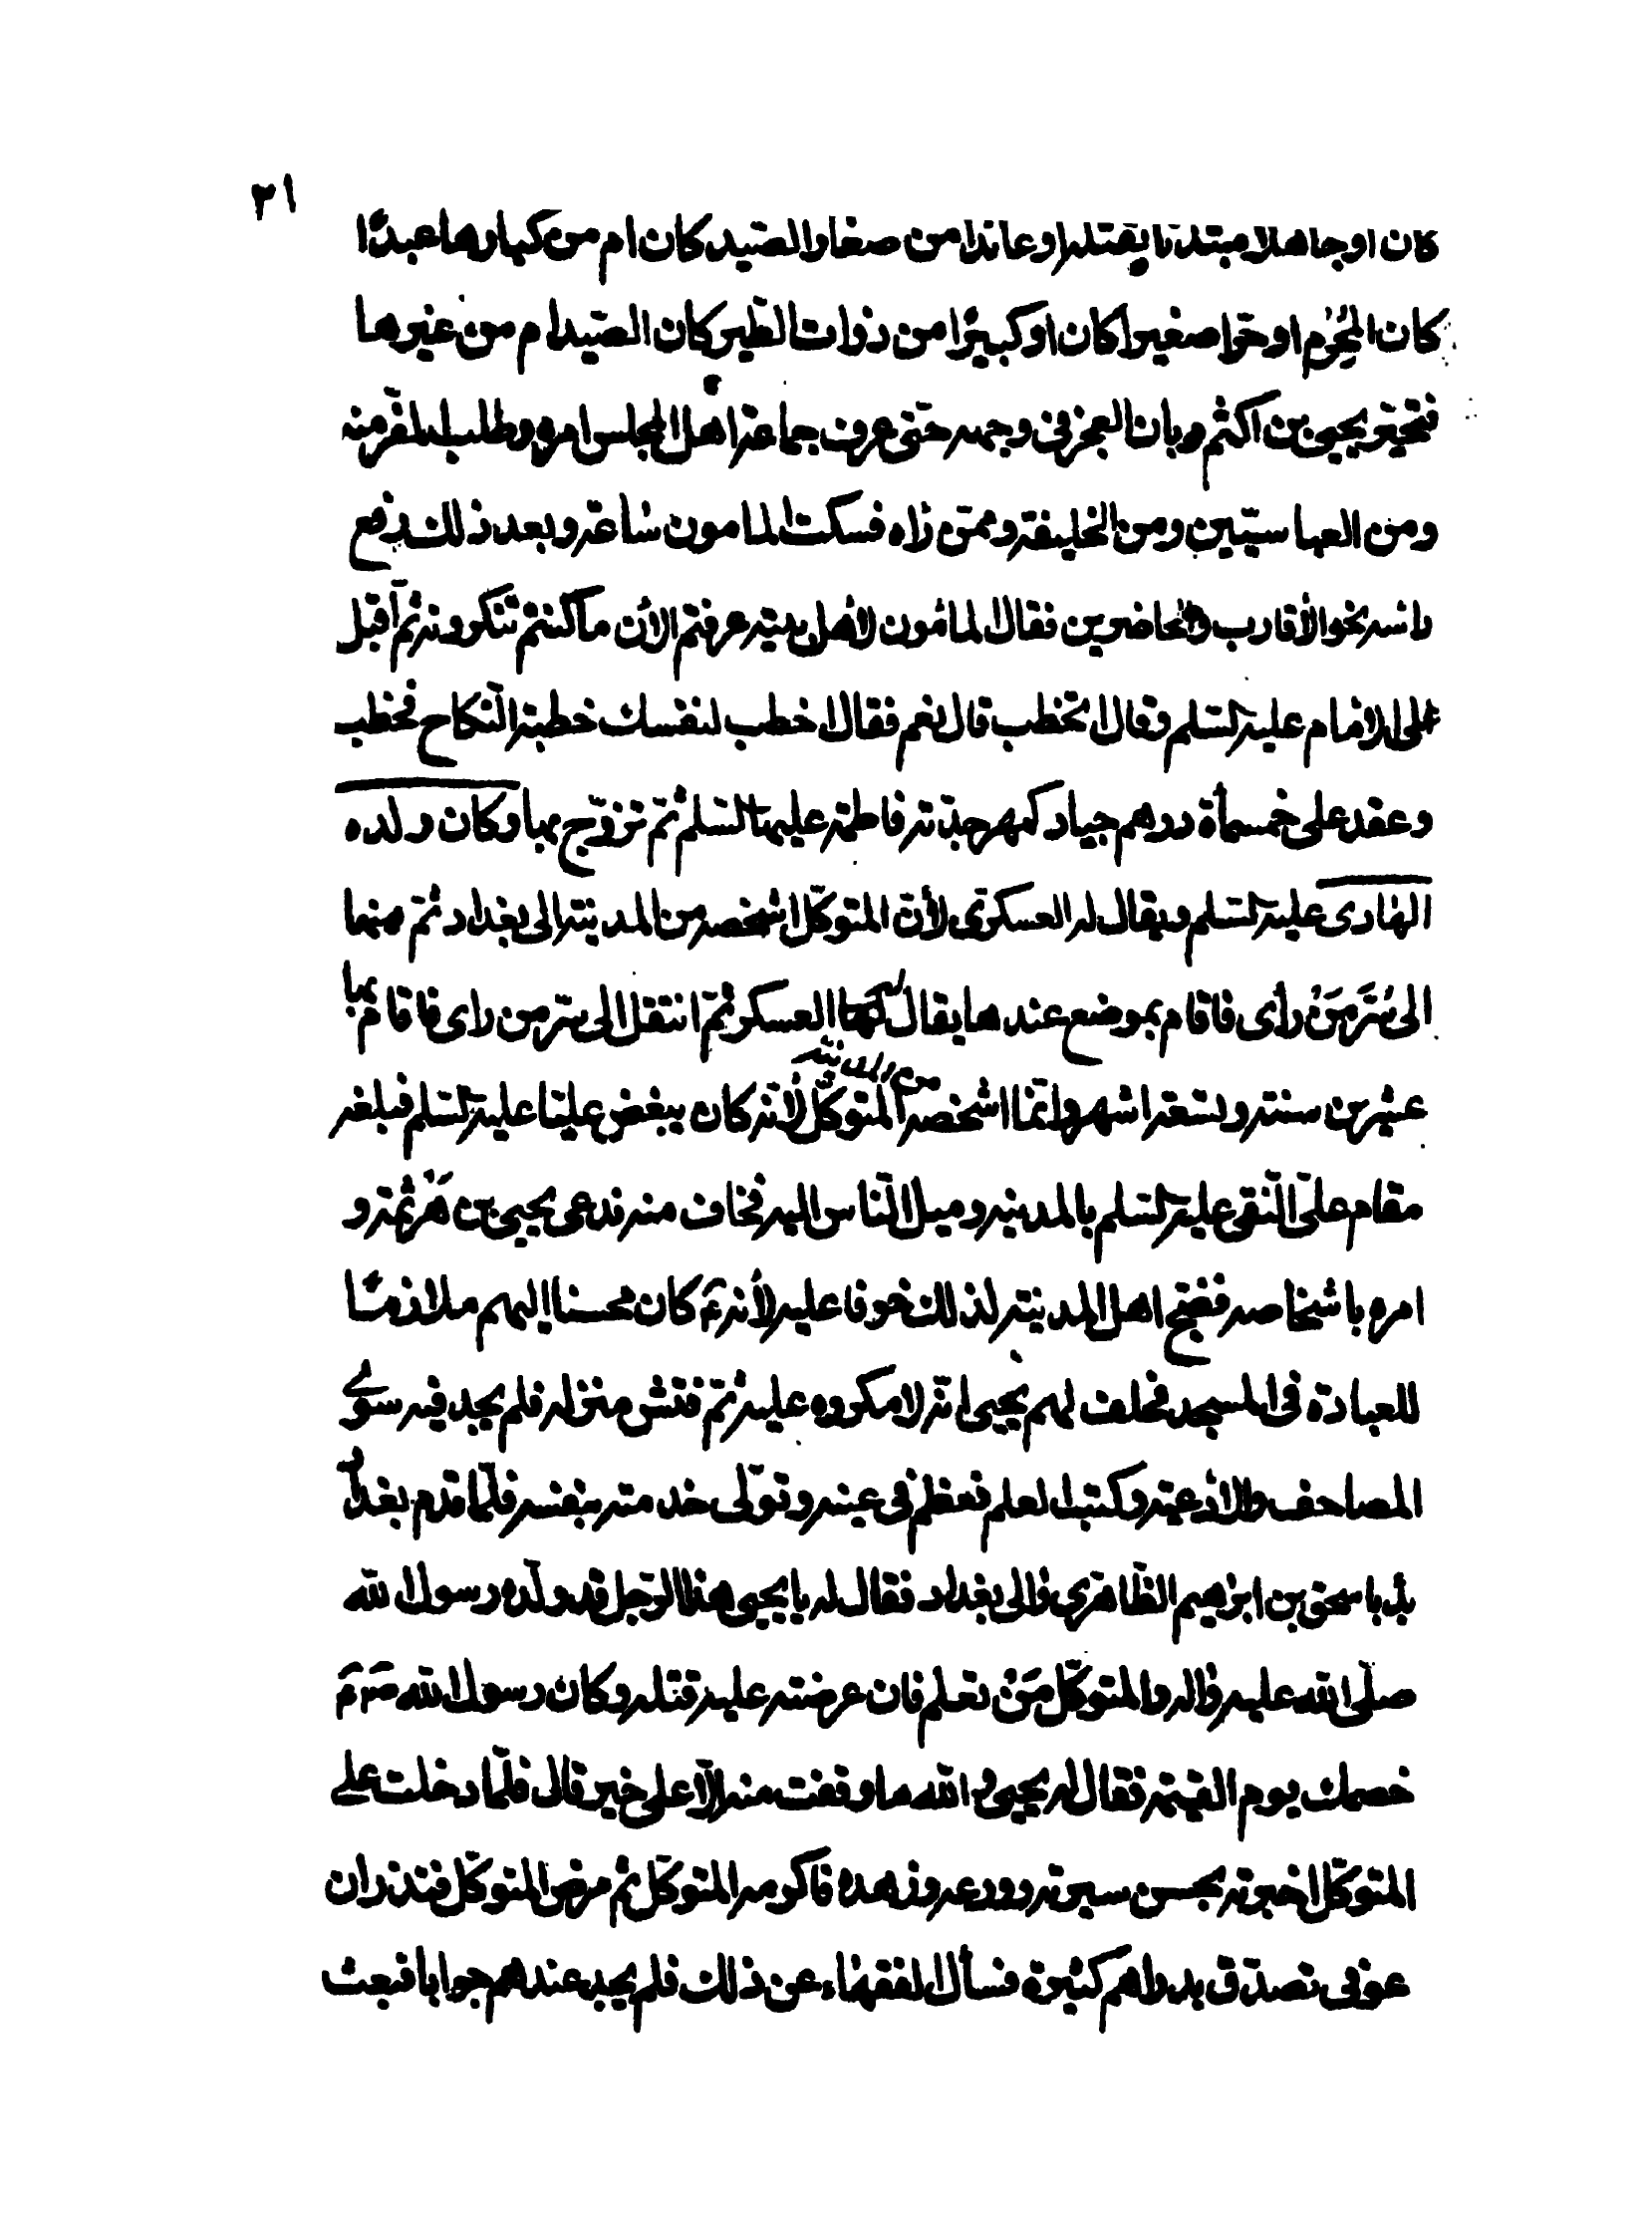 ٣١
كان او جاهلا مبتدئا بقتله او عائدا من صغار الصّيد كان ام من كبارها عبدًا
كان المُحْرِم او حرّا صغيرا كان او كبيرًا من ذوات الطّير كان الصّيد ام من غيرها
فتحيّر يحيى بن اكثم و بان العجز فى وجهه حتّى عرف جماعة اهل المجلس امره و طلب المفرّ منه
ومن العباسيّين ومن الخليفة وممّن رٰاه فسكت المامون سٰاعة وبعد ذلك رفع
راسه نحو الأقارب والحاضرين فقال المأمون لأهل بيته عرفتم الأن ما كنتم تنكرونه ثمّ أقبل
على الامٰام عليه السّلم وقال اتخطب قال نعم فقال اخطب لنفسك خطبة النّكاح فخطب
وعقد على خمسمأة درهم جياد كمهر جدّته فاطمة عليها السّلم ثمّ تزوّج بها وكان ولده
الهٰادى عليه السّلم ويقال له العسكرىّ لأنّ المتوكّل اشخصه من المدينة الى بغداد ثمّ منها
الى سُرَّمَنْ رأى فاقام بموضع عندها يقال لها العسكر ثمّ انتقل الى سرّ من راى فاقام بها
عشرين سنة وتسعة اشهر وانّما اشخصه المتوكّل من المدينة لأنّه كان يبغض عليّا عليه السّلم فبلغه
مقام علىّ النّقى عليه السّلم بالمدينة وميل النّاس اليه فخاف منه فدعى يحيى بن هَرْثمة و
امره باشخاصه فضجّ اهل المدينة لذلك خوفا عليه لأنه ع كان محسنا اليهم ملازمًا
للعبادة فى المسجد فحلف لهم يحيى انّه لا مكروه عليه ثمّ فتّش منزله فلم يجد فيه سوى
المصاحف والأدعية وكتب العلم فعظم فى عينه وتولّى خدمته بنفسه فلمّا قدم بغداد
بدأ باسحق بن ابرٰهيم الظّاهرى وٰالى بغداد فقال له يا يحيى هذا الرّجل قد ولّده رسول الله
صلّى الله عليه وٰاله والمتوكّل مَنْ تعلم فان عرضته عليه قتله وكان رسول الله ص ع م
خصمك يوم القيٰمة فقال له يحيى والله ما وقفت منه الّا على خير قال فلمّا دخلت على
المتوكّل اخبرته بحسن سيرته وورعه وزهده فاكرمه المتوكّل ثم مرض المتوكّل فنذر ان
عوفى تصدّق بدراهم كثيرة فسأل الفقهٰاء عن ذلك فلم يجد عندهم جوابا فبعث